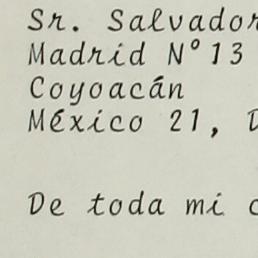 Sr. Salvador
Madrid N° 13
Coyoacán
México 21, D
De toda mi c